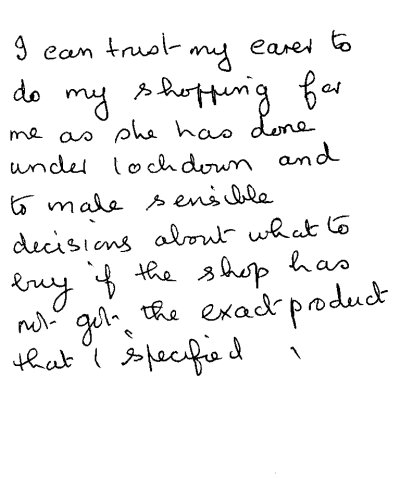 I can trust my carer to
do my shopping for
me as she has done
under lockdown and
to make sensible
decisions about what to
buy if the shop has
not got the exact product
that I specified